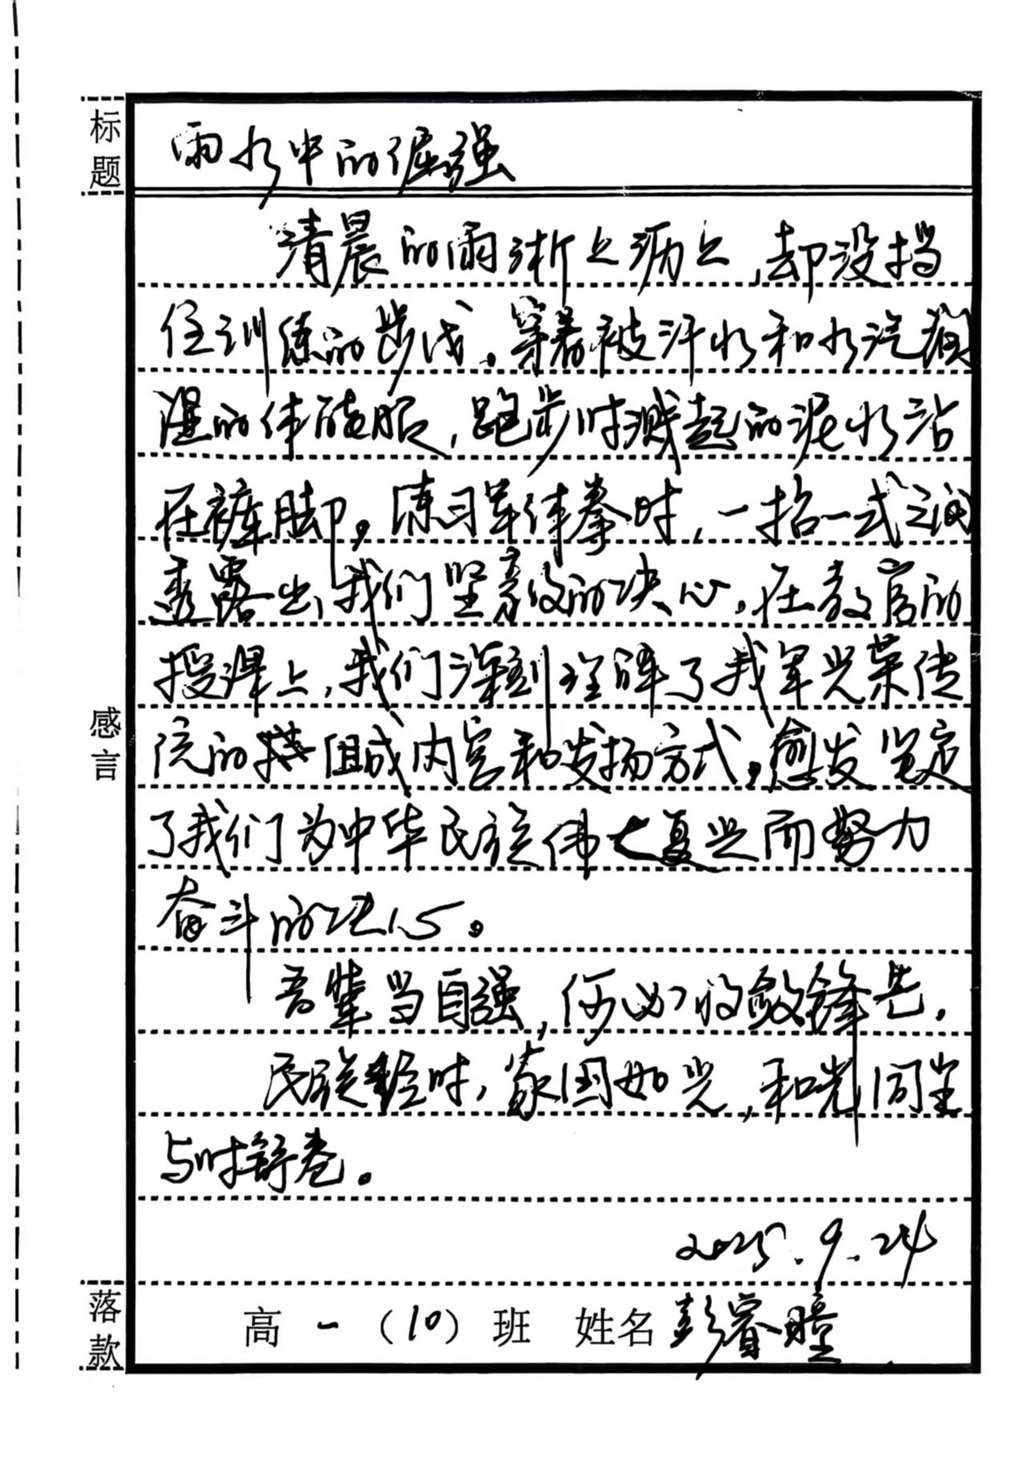 标题
雨水中的倔强
清晨的雨淅淅沥沥,却没挡
住训练的步伐。穿着被汗水和水汽润
湿的体能服,跑步时溅起的泥水沾
在裤脚。练习军体拳时,一招一式之间
透露出我们坚毅的决心。在教官的
授课上,我们深刻理解了我军光荣传
统的组成内容和发扬方式,愈发坚定
了我们为中华民族伟大复兴而努力
奋斗的决心。
感言
吾辈当自强,何必收敛锋芒。
民族经时,家国如光,和光同尘
与时舒卷。
2025.9.24
落款
高一(10)班 姓名 彭睿瞳